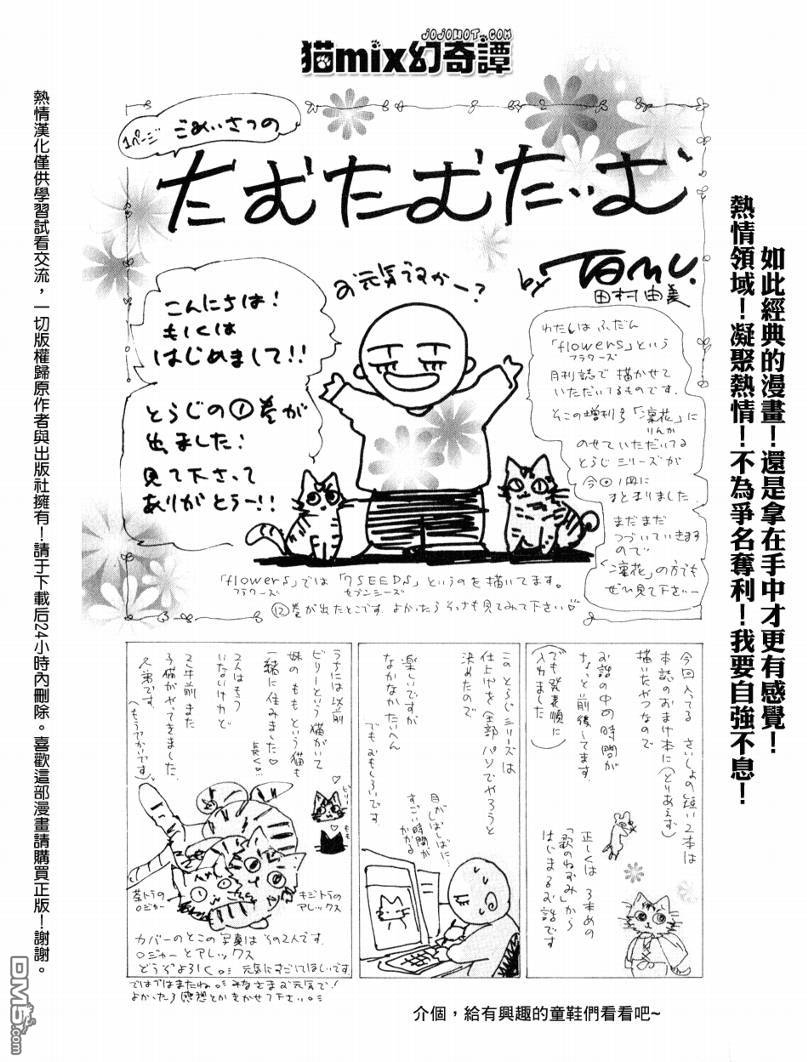 JOJOHOT.COM
猫mix幻奇譚
1ページ
ごあいさつの
たむたむたいむ
by Tamu.
田村由美
お元気ですかー?
こんにちは!
もしくは
はじめまして!!
とらじの①巻が
出ました!
見て下さって
ありがとうー!!
わたしは ふだん
「flowers」という
フラワーズ
月刊誌で 描かせて
いただいてるものです。
そこの増刊号「凛花」に
りんか
のせていただいてる
とらじ シリーズが
今回 1冊に
まとまりました
まだまだ
つづいていきます
ので
「凛花」の方でも
ぜひ見て下さいー
「flowers」では「7SEEDS」というのを描いてます。
フラワーズ セブンシーズ
⑫巻が出たとこです よかったら そっちも見てみて下さい♡
今回入ってる さいしょの短い2本は
本誌のおまけ本に(とりあえず)
描いたやつなので
お話の中の時間が
ちょっと前後してます。
(でも発表順に
入れました)
正しくは 3本めの
「歌のねずみ」から
はじまるお話です
このとらじシリーズは
仕上げを全部パソでやろうと
決めたので
楽しいですが
なかなかたいへん
でもおもしろいです
目がしばしばに…
すごい時間が
かかる
うちには以前
ビリーという猫がいて
妹のももという猫も
一緒に住みました
長く…
2人はもう
いないけれど
2年前また
子猫がやってきました
兄弟です。
(もうでかいです)
ビリー♡
もも♡
茶トラの
ロジャー
キジトラの
アレックス
カバーのとこの写真は その2人です。
ロジャーとアレックス
どうぞよろしく。 元気にすごしてほしいです
ではではまたね。 みなさまお元気で!
よかったら 感想とかきかせて下さい。
熱情漢化僅供學習試看交流,一切版權歸原作者與出版社擁有!請于下載后24小時內刪除。喜歡這部漫畫請購買正版!謝謝。
如此經典的漫畫!還是拿在手中才更有感覺!
熱情領域!凝聚熱情!不為爭名奪利!我要自強不息!
介個,給有興趣的童鞋們看看吧~
DM5.com